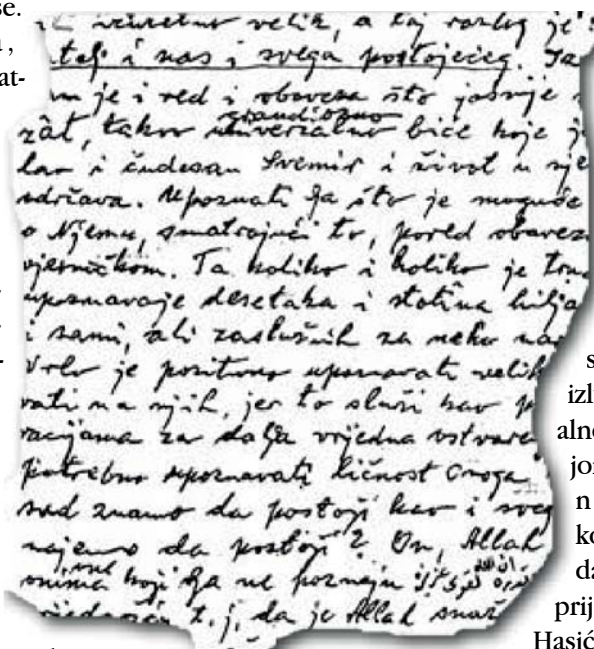 se.
izuzetno velik, a taj razlog je
,
i nas i svega postojećeg. Ta
at-
je i red i obaveza što jasnije
takvo grandiozno univerzalno biće koje
i čudesan Svemir i život u nje
održava. Upoznati Ga što je moguće
o Njemu, smatrajući to, pored obavez
vjerničkom. Ta koliko i koliko je
upoznavaje desetaka i stotina hilja
i sami, ali zaslužnih za neku
Vrlo je pozitivno upoznavati velik
na njih, jer to služi kao
racijama za dalja vrijedna ostvare
potrebno upoznavati ličnost Onoga
sad znamo da postoji kao i sveg
da postoji? On, Allah
onima koji Ga ne poznaju
t.j. da je Allah
s
izl
aln
jo
n
k
da
prij
Hasić